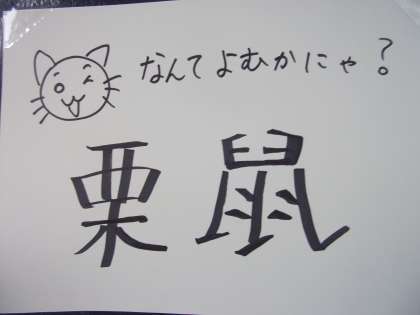 なんてよむかにゃ?
栗鼠